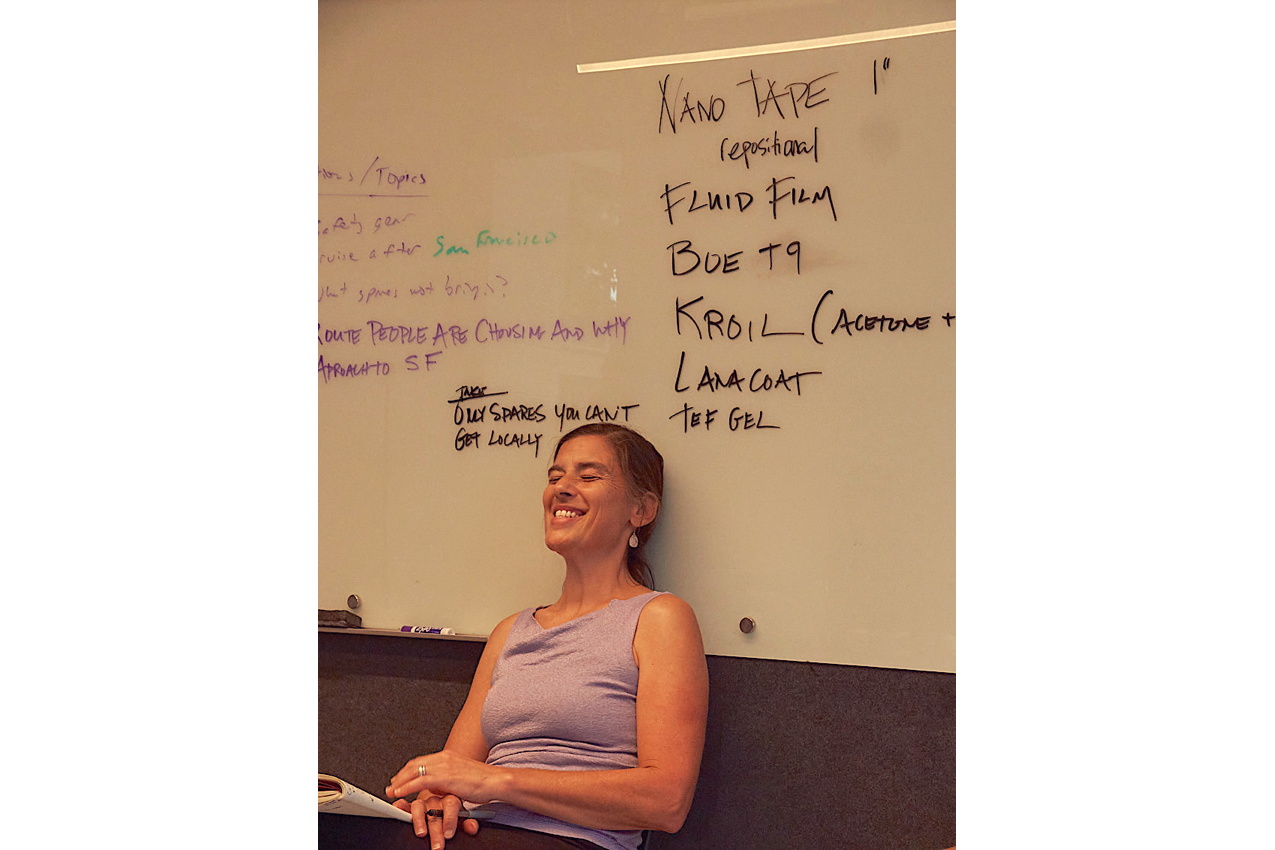 /Topics
safety gear
cruise after San Francisco
what spares not bringin?
ROUTE PEOPLE ARE CHOOSING AND WHY
APROACH TO SF
TAKE
ONLY SPARES YOU CAN'T
GET LOCALLY
NANO TAPE 1"
repositional
FLUID FILM
BOE T9
KROIL (ACETONE +
LANACOAT
TEF GEL